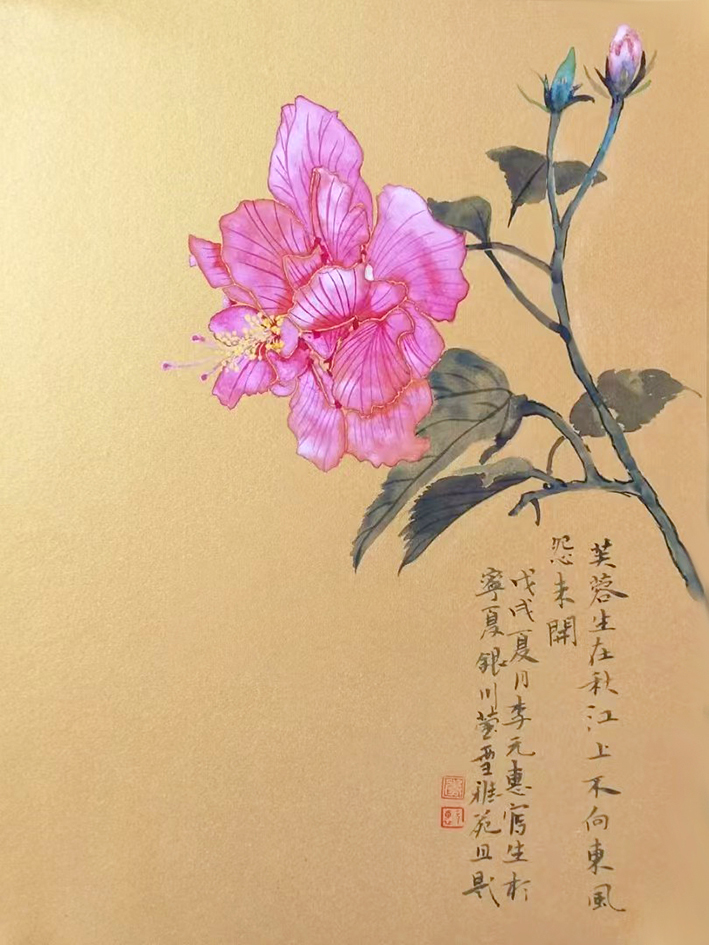 芙蓉生在秋江上不向東風
怨未開
戊戌夏月李元惠寫生於
寧夏銀川螢雪雅苑且題